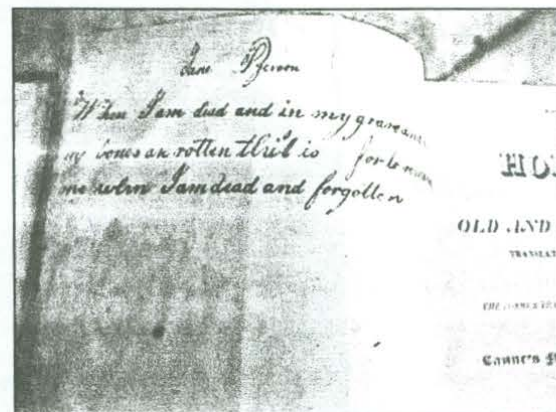 Jane
When I am dead and in my grave and
my bones are rotten this is for
me when I am dead and forgotten
HO
OLD AND
TRANSLAT
Canne's